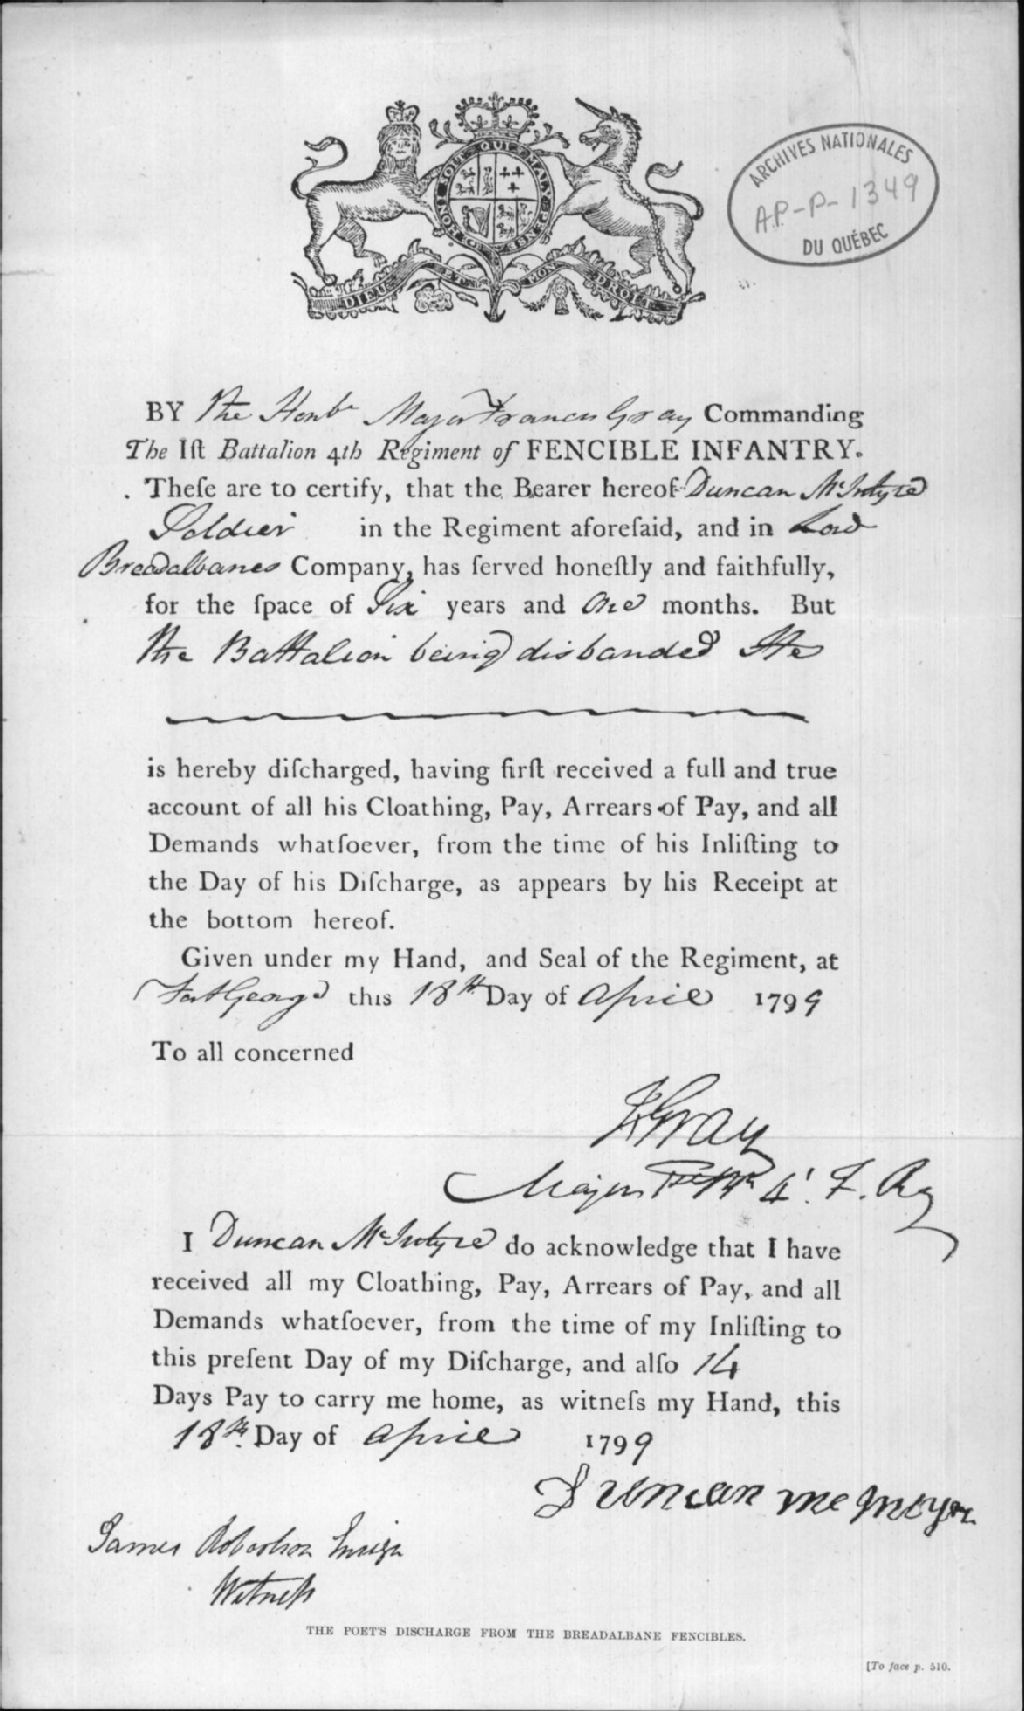 HONI SOIT QUI MAL Y PENSE
DIEU ET MON DROIT
ARCHIVES NATIONALES
AP-P-1349
DU QUÉBEC
BY The Honble Major Francis Gray Commanding
The Iſt Battalion 4th Regiment of FENCIBLE INFANTRY.
Theſe are to certify, that the Bearer hereof Duncan McIntyre
Soldier in the Regiment aforeſaid, and in Lord
Breadalbanes Company, has ſerved honeſtly and faithfully,
for the ſpace of Six years and one months. But
the Battalion being disbanded He
is hereby diſcharged, having firſt received a full and true
account of all his Cloathing, Pay, Arrears of Pay, and all
Demands whatſoever, from the time of his Inliſting to
the Day of his Diſcharge, as appears by his Receipt at
the bottom hereof.
Given under my Hand, and Seal of the Regiment, at
Fort George this 18th Day of April 1799
To all concerned
F Gray
Major 4t. F. Rg
I Duncan McIntyre do acknowledge that I have
received all my Cloathing, Pay, Arrears of Pay, and all
Demands whatſoever, from the time of my Inliſting to
this preſent Day of my Diſcharge, and alſo 14
Days Pay to carry me home, as witneſs my Hand, this
18th Day of April 1799
Duncan
James Robertson Ensign
Witneſs
THE POET'S DISCHARGE FROM THE BREADALBANE FENCIBLES.
[To face p. 510.